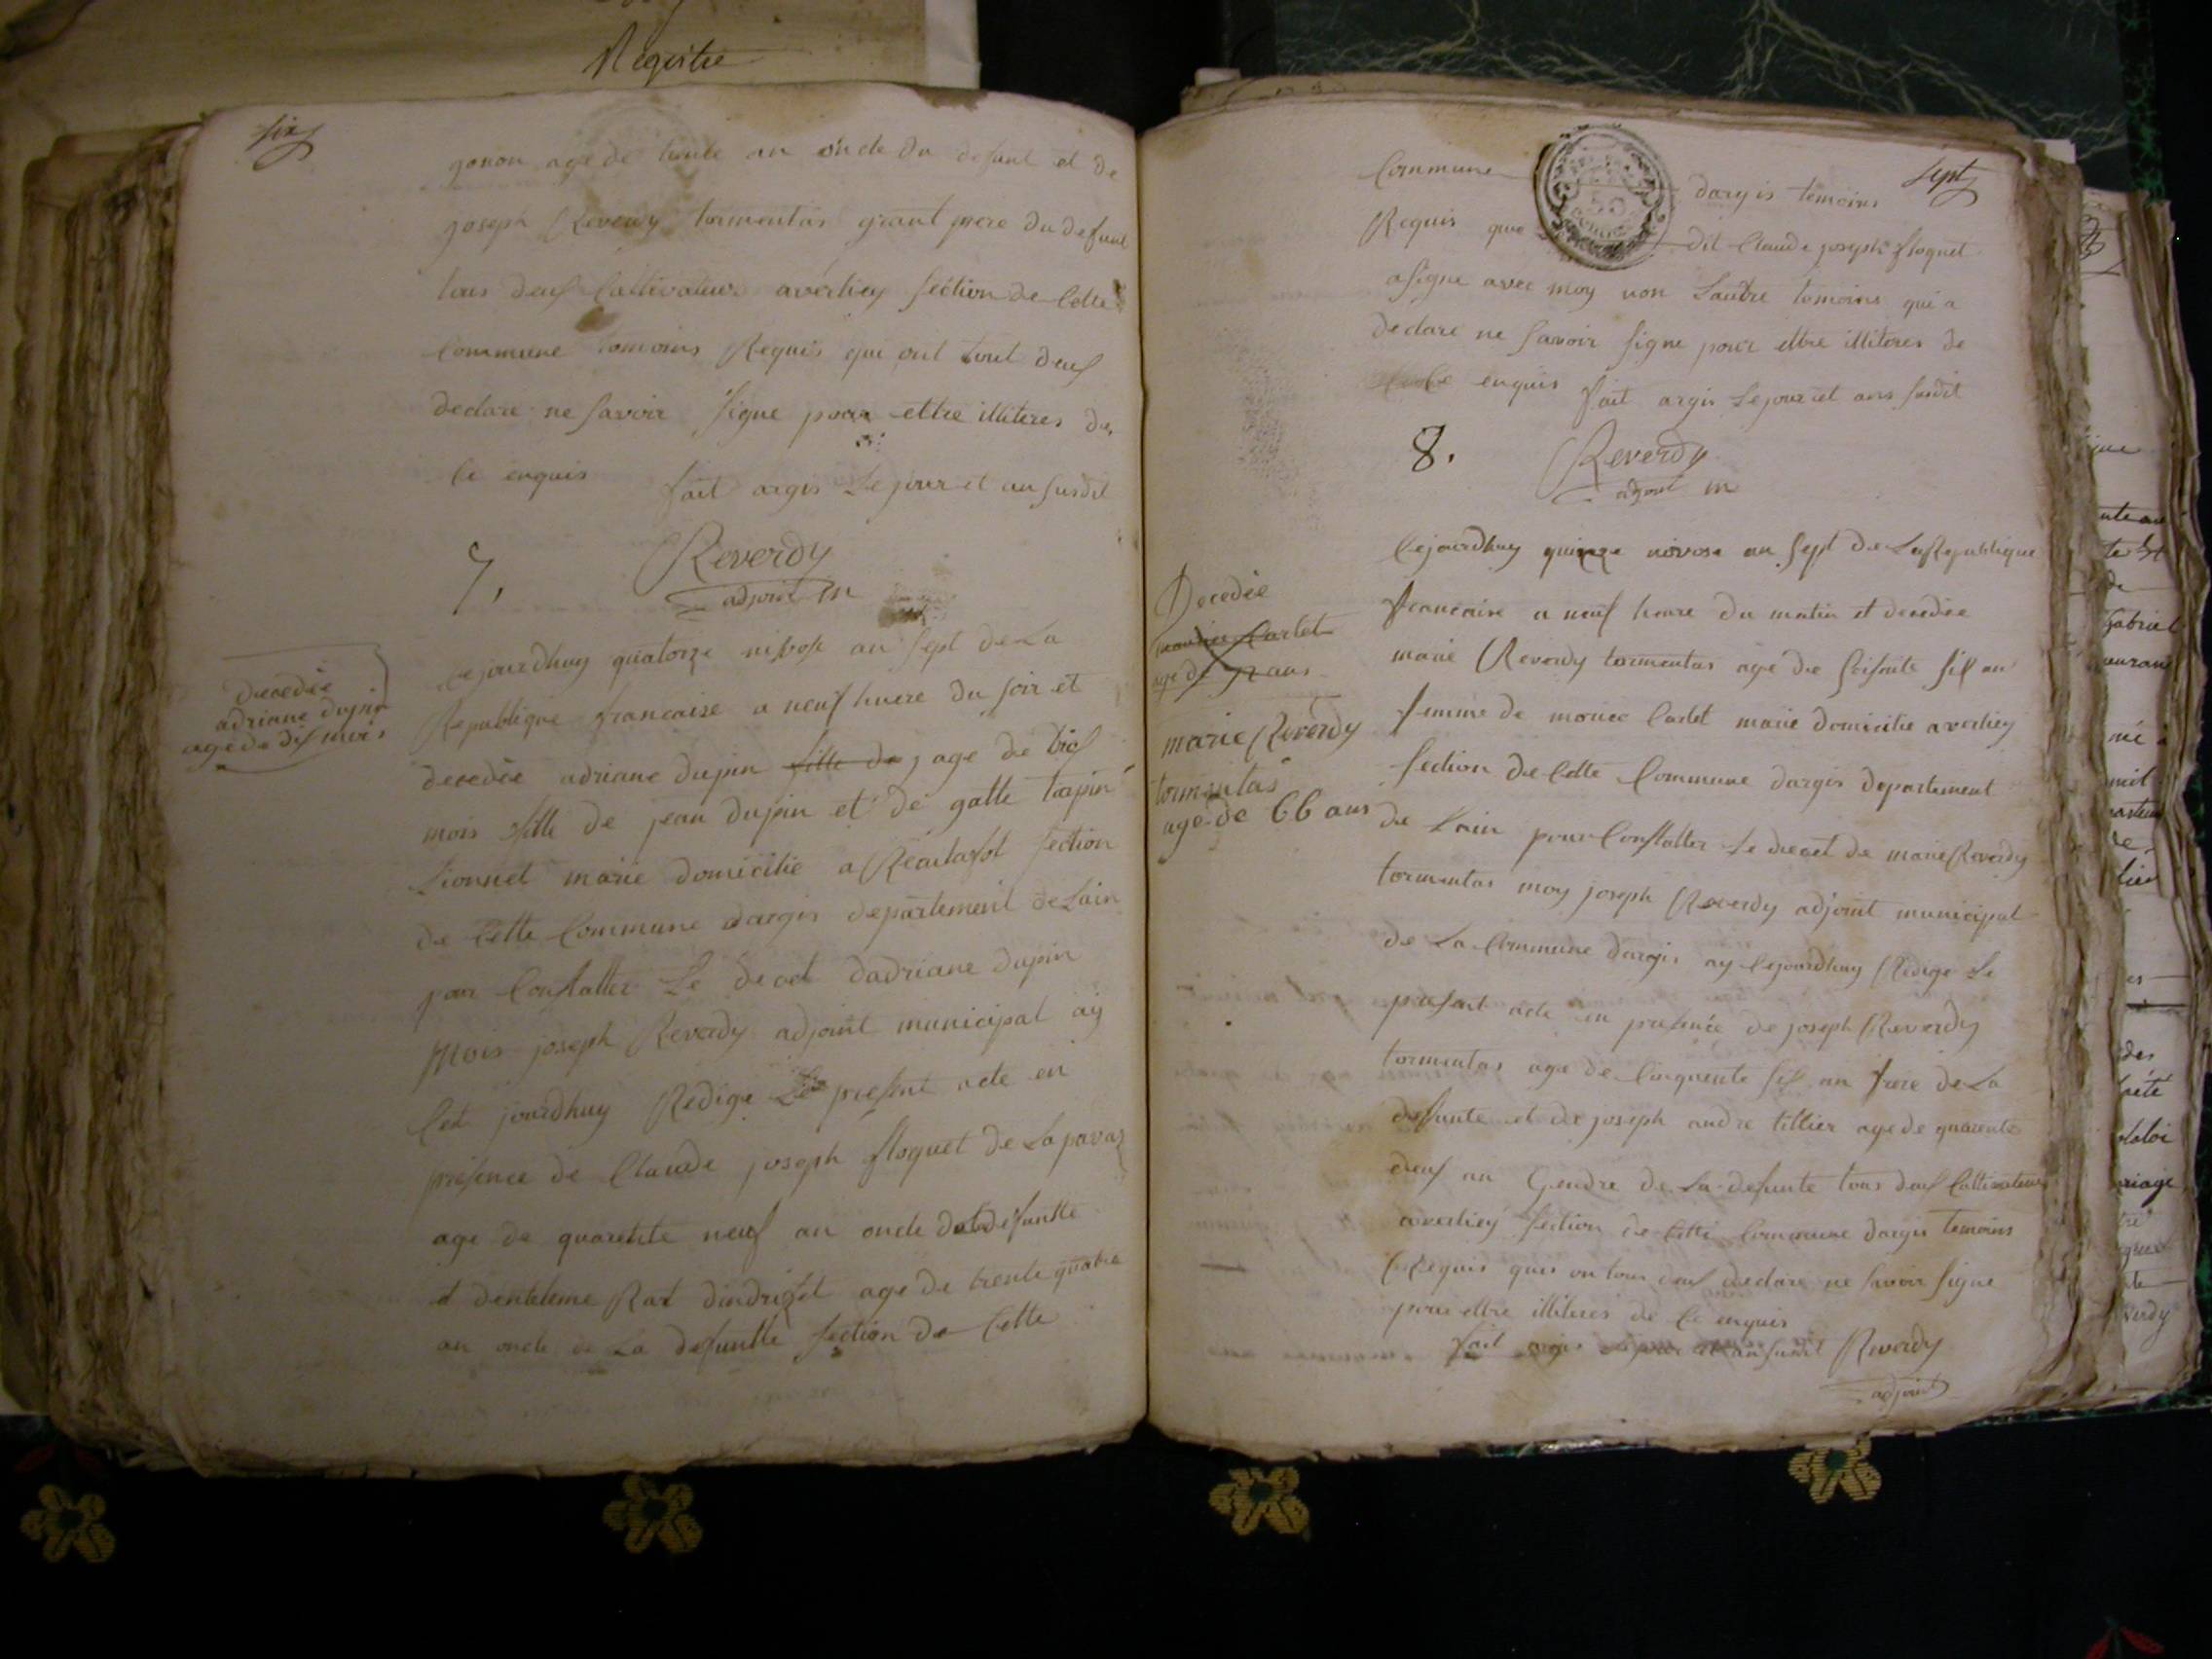 Registre
six
gonon age de trente an oncle du defunt et de
joseph Reverdy tormentas grant pere du defunt
tous deux Cultivateur averliey section de Cette
Commune temoins Requis qui ont tout deux
declare ne savoir signe pour ettre illiteres de
Ce enquis fait argis Le jour et an susdit
7. Reverdy
adjoint m
decedée
adriane dupin
age de dix mois
Cejourdhuy quatorze nivose an sept de La
Republique francaise a neuf huere du soir et
decedée adriane dupin fille de age de dix
mois fille de jean dupin et de
Lionnet marie domicilie a section
de Cette Commune dargis departement de Lain
pour Constatter Le decet dadriane dupin
mois joseph Reverdy adjoint municipal ay
Cest jourdhuy Redige Le present acte en
presence de Claude joseph floquet de
age de quarente neuf an oncle de La defuntte
et age de trente quatre
an oncle de La defuntte section de Cette
sept
Commune dargis temoins
Requis que dit Claude joseph floquet
a signe avec moy non Lautre temoins qui a
declare ne savoir signe pour ettre illiteres de
Ce enquis fait argis Le jour et ans susdit
8. Reverdy
adjoint m
Decedée
Cartet
age de 72 ans
marie Reverdy
tormentas
age de 66 ans
Cejourdhuy quinze nivose an sept de La Republique
francaise a neuf heure du matin et decedée
marie Reverdy tormentas age de soisente six an
femme de Cartet marie domicilie averliey
section de Cette Commune dargis departement
de Lain pour Constatter Le decet de marie Reverdy
tormentas moy joseph Reverdy adjoint municipal
de La Commune dargis ay Cejourdhuy Redige Le
present acte en presence de joseph Reverdy
tormentas age de Cinquente six an frere de La
defunte et de joseph andre tillier age de quarente
deux an Gendre de La defunte tous deux Cultivateur
averliey section de Cette Commune dargis temoins
Requis quis on tous deux declare ne savoir signe
pour ettre illiteres de Ce enquis
fait argis Le jour et an susdit Reverdy
adjoint